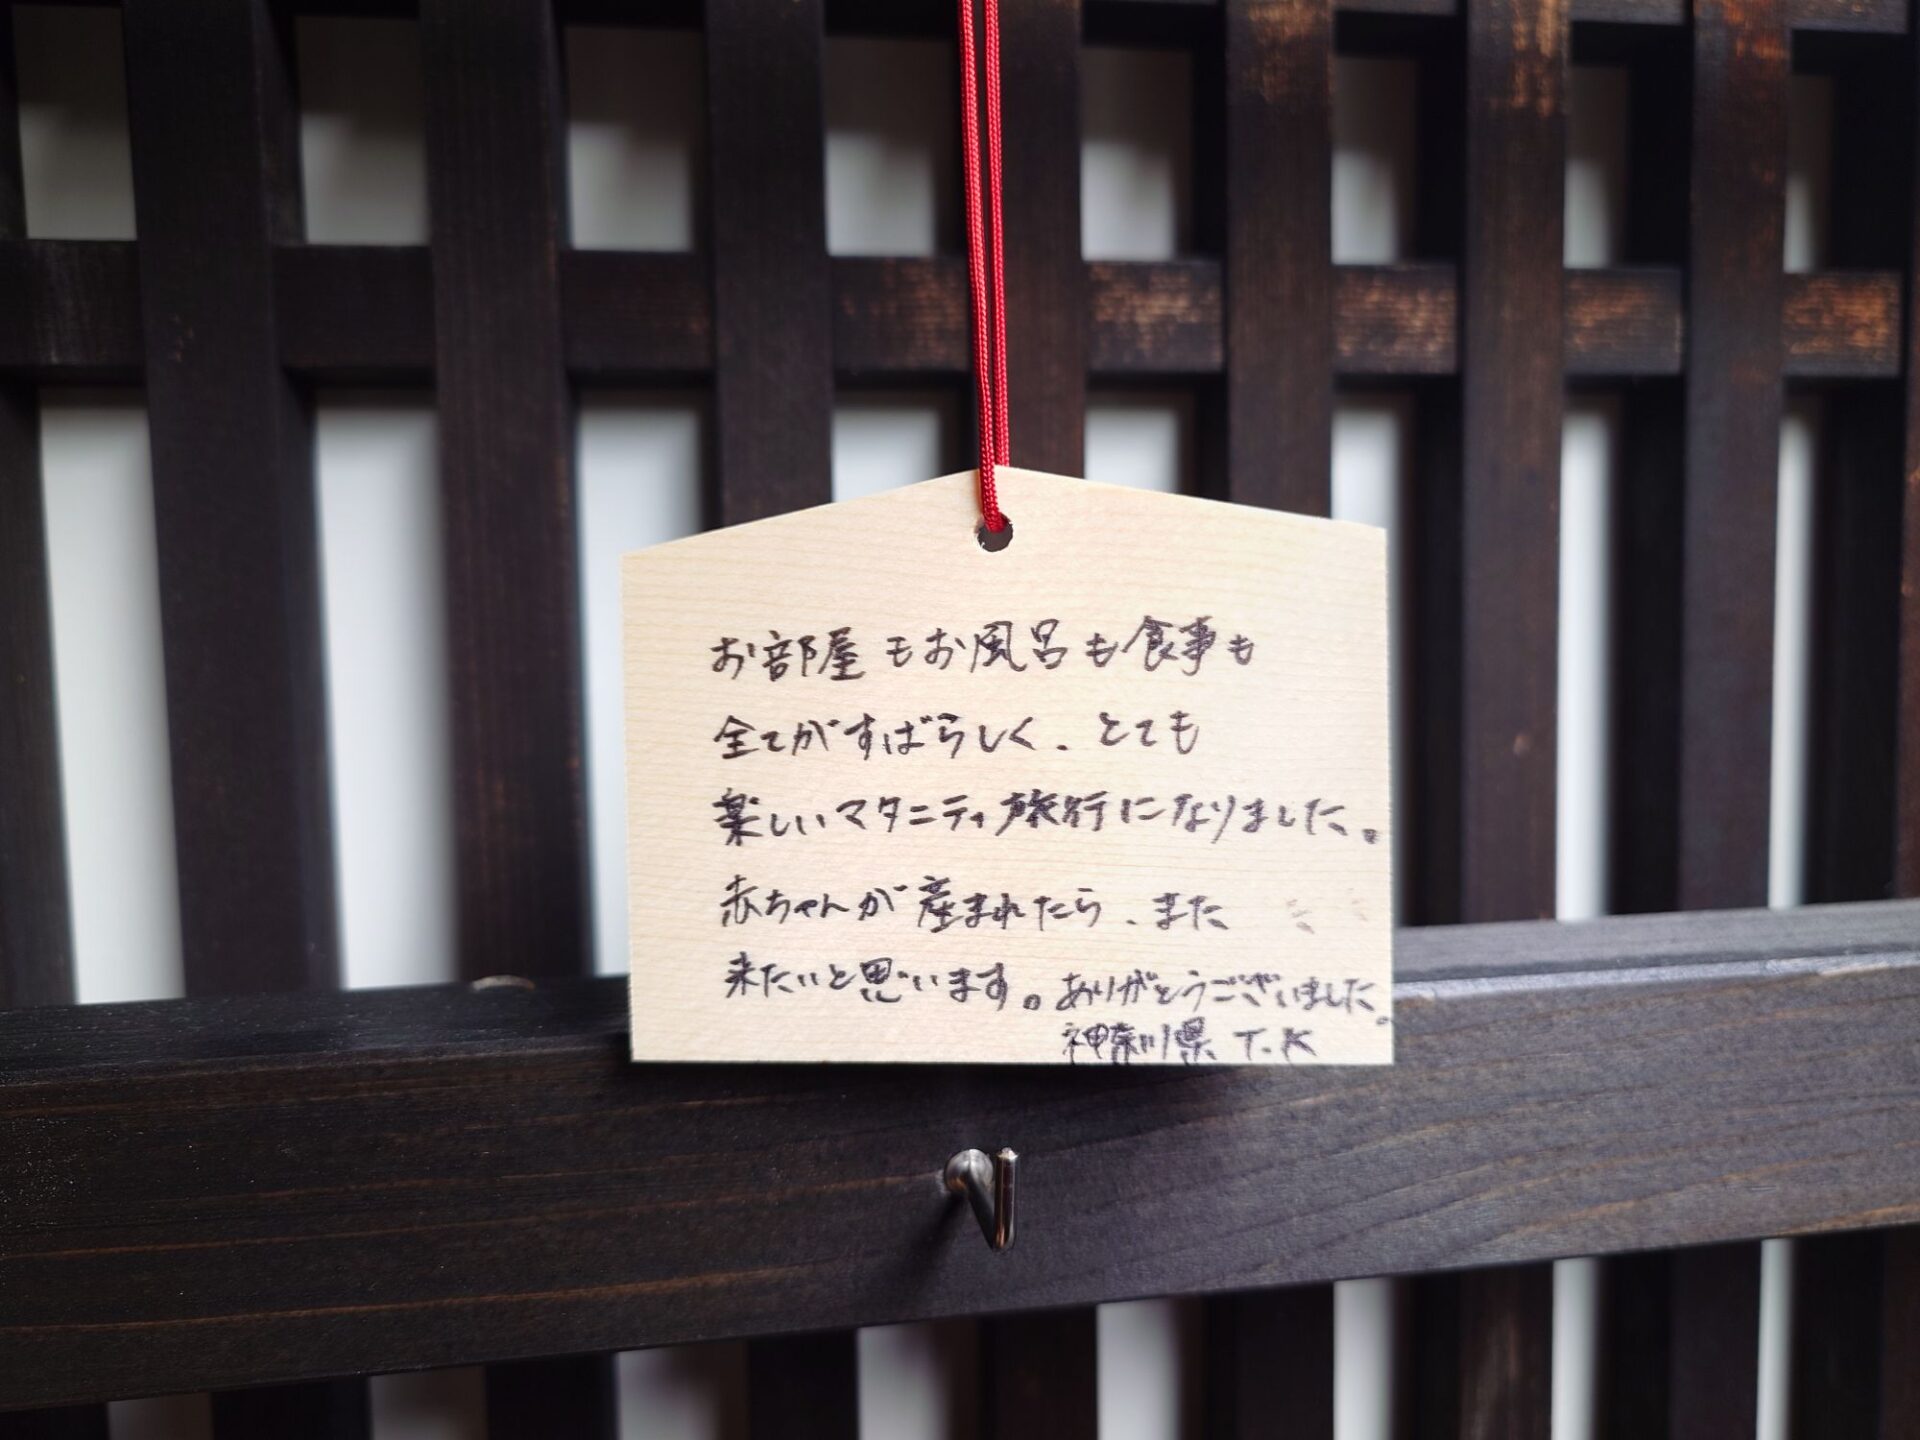 お部屋もお風呂も食事も
全てがすばらしく、とても
楽しいマタニティ旅行になりました。
赤ちゃんが産まれたら、また
来たいと思います。ありがとうございました。
神奈川県 T.K